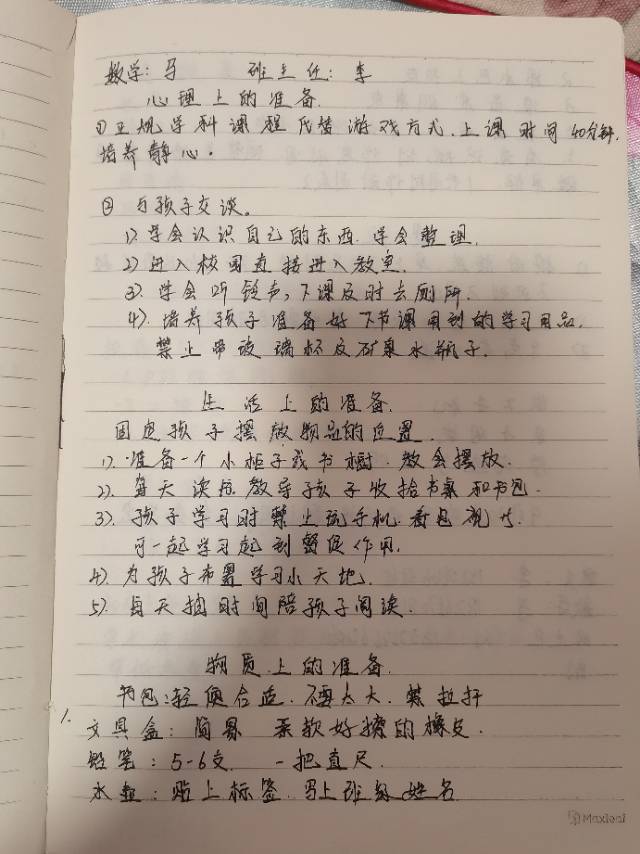 数学：马 班主任：李
心理上的准备.
①正规学科课程代替游戏方式.上课时间40分钟.
培养静心。
② 与孩子交谈。
1).学会认识自己的东西.学会整理.
2)进入校园直接进入教室.
3).学会听铃声,下课及时去厕所.
4).培养孩子准备好下节课用到的学习用品.
禁止带玻璃杯及矿泉水瓶子.
生活上的准备.
固定孩子摆放物品的位置.
1).准备一个小柜子或书橱.教会摆放.
2).每天读后教导孩子收拾书桌和书包.
3).孩子学习时禁止玩手机.看电视.
可一起学习起到督促作用.
4).为孩子布置学习小天地.
5).每天抽时间陪孩子阅读.
物质上的准备.
1.书包:轻便合适.不要太大.禁拉杆
文具盒:简易 柔软好擦的橡皮.
铅笔:5-6支. 一把直尺.
水壶:贴上标签.写上班级姓名
Maxleaf